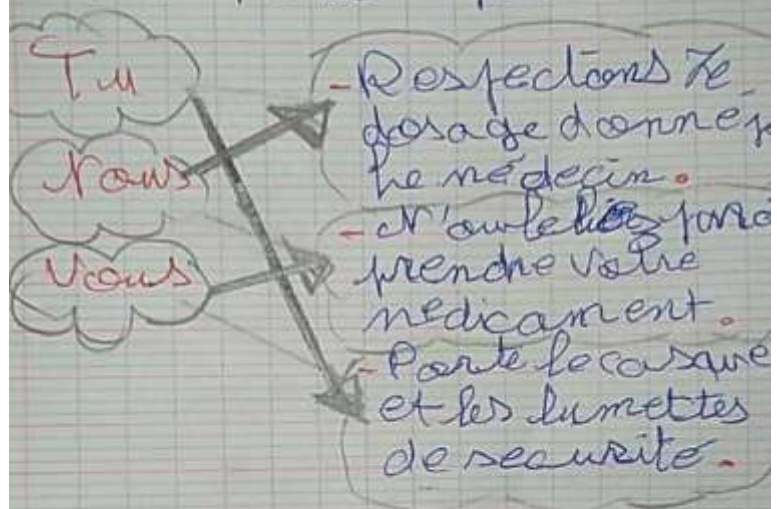 Tu
Nous
Vous
- Respectons le
dosage donné
le médecin.
- N'oubliez pas
prendre votre
médicament.
- Porte le casque
et les lunettes
de securité.